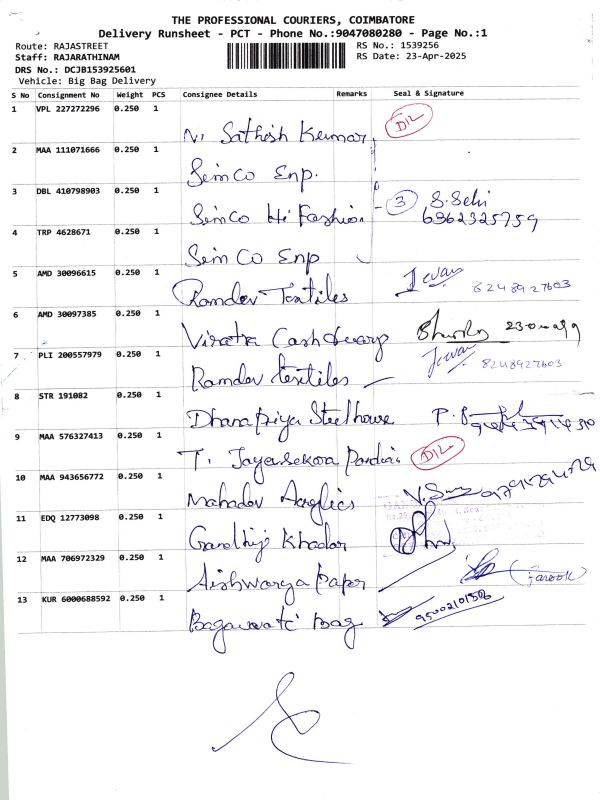 THE PROFESSIONAL COURIERS, COIMBATORE
Delivery Runsheet - PCT - Phone No.:9047080280 - Page No.:1
Route: RAJASTREET
RS No.: 1539256
Staff: RAJARATHINAM
RS Date: 23-Apr-2025
DRS No.: DCJB153925601
Vehicle: Big Bag Delivery
S No Consignment No Weight PCS Consignee Details Remarks Seal & Signature
1 VPL 227272296 0.250 1 N. Sathish Kumar D/L
2 MAA 111071666 0.250 1 Simco Enp.
3 DBL 410798903 0.250 1 Simco Hi Fashion 3 S. Selvi
6362325759
4 TRP 4628671 0.250 1 Simco Enp
5 AMD 30096615 0.250 1 Ramdev Textiles Jevan 8248927603
6 AMD 30097385 0.250 1
7 PLI 200557979 0.250 1 Ramdev textiles Jevan 8248927603
8 STR 191082 0.250 1 Dhanapriya Steelhouse
9 MAA 576327413 0.250 1 T. Jayasekara D/L
10 MAA 943656772 0.250 1 Mahadev Acrylics
11 EDQ 12773098 0.250 1 Gandhiji Khadar
12 MAA 706972329 0.250 1 Aishwarya Paper Farook
13 KUR 6000688592 0.250 1 Bagawati Bag